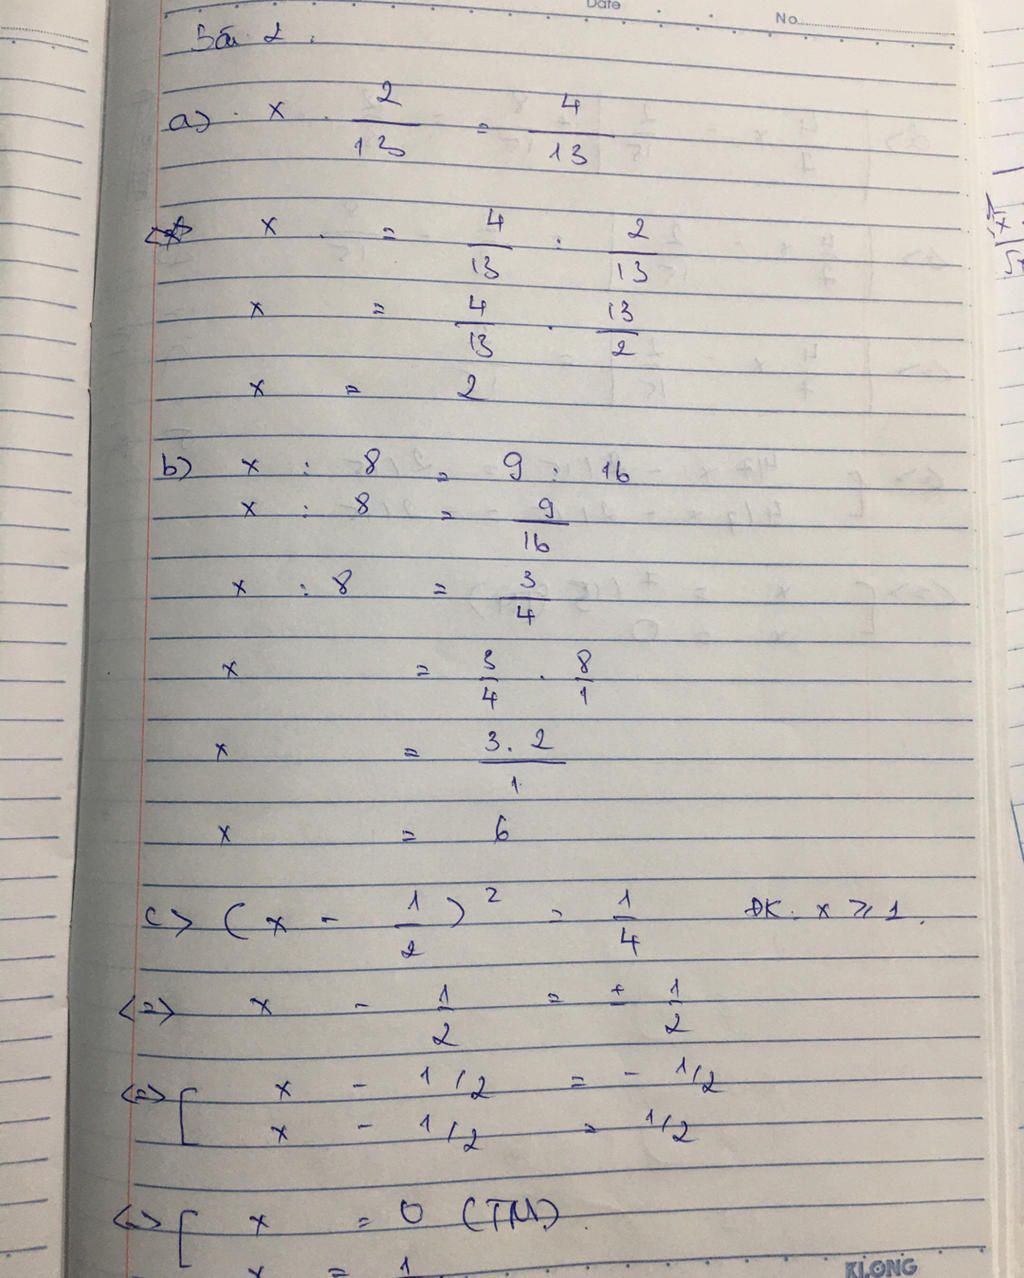 Date
No.
Bài 2 :
a) x . 2/13 = 4/13
x . = 4/13 : 2/13
x = 4/13 . 13/2
x = 2
b) x : 8 = 9 : 16
x : 8 = 9/16
x : 8 = 3/4
x = 3/4 . 8/1
x = 3.2/1
x = 6
c) (x - 1/2)² = 1/4 ĐK: x ≥ 1.
<=> x - 1/2 = ± 1/2
<=> [ x - 1/2 = - 1/2
x - 1/2 = 1/2
<=> [ x = 0 (TM)
x = 1
KLONG